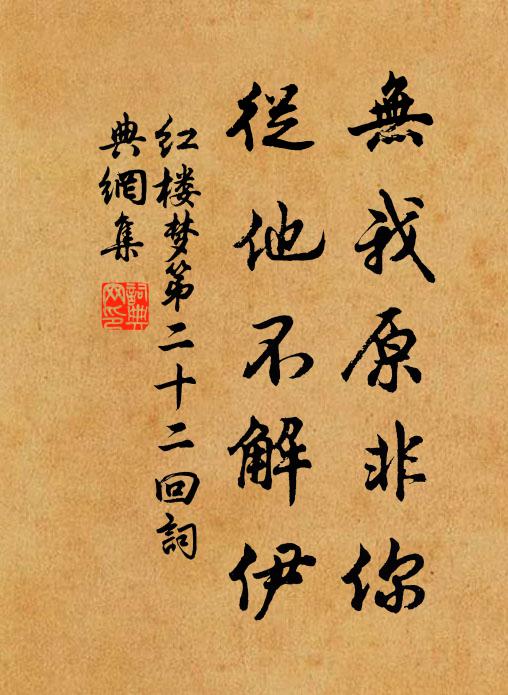 無我原非你
從他不解伊
红楼梦第二十二回詞
典網集
詞典网印